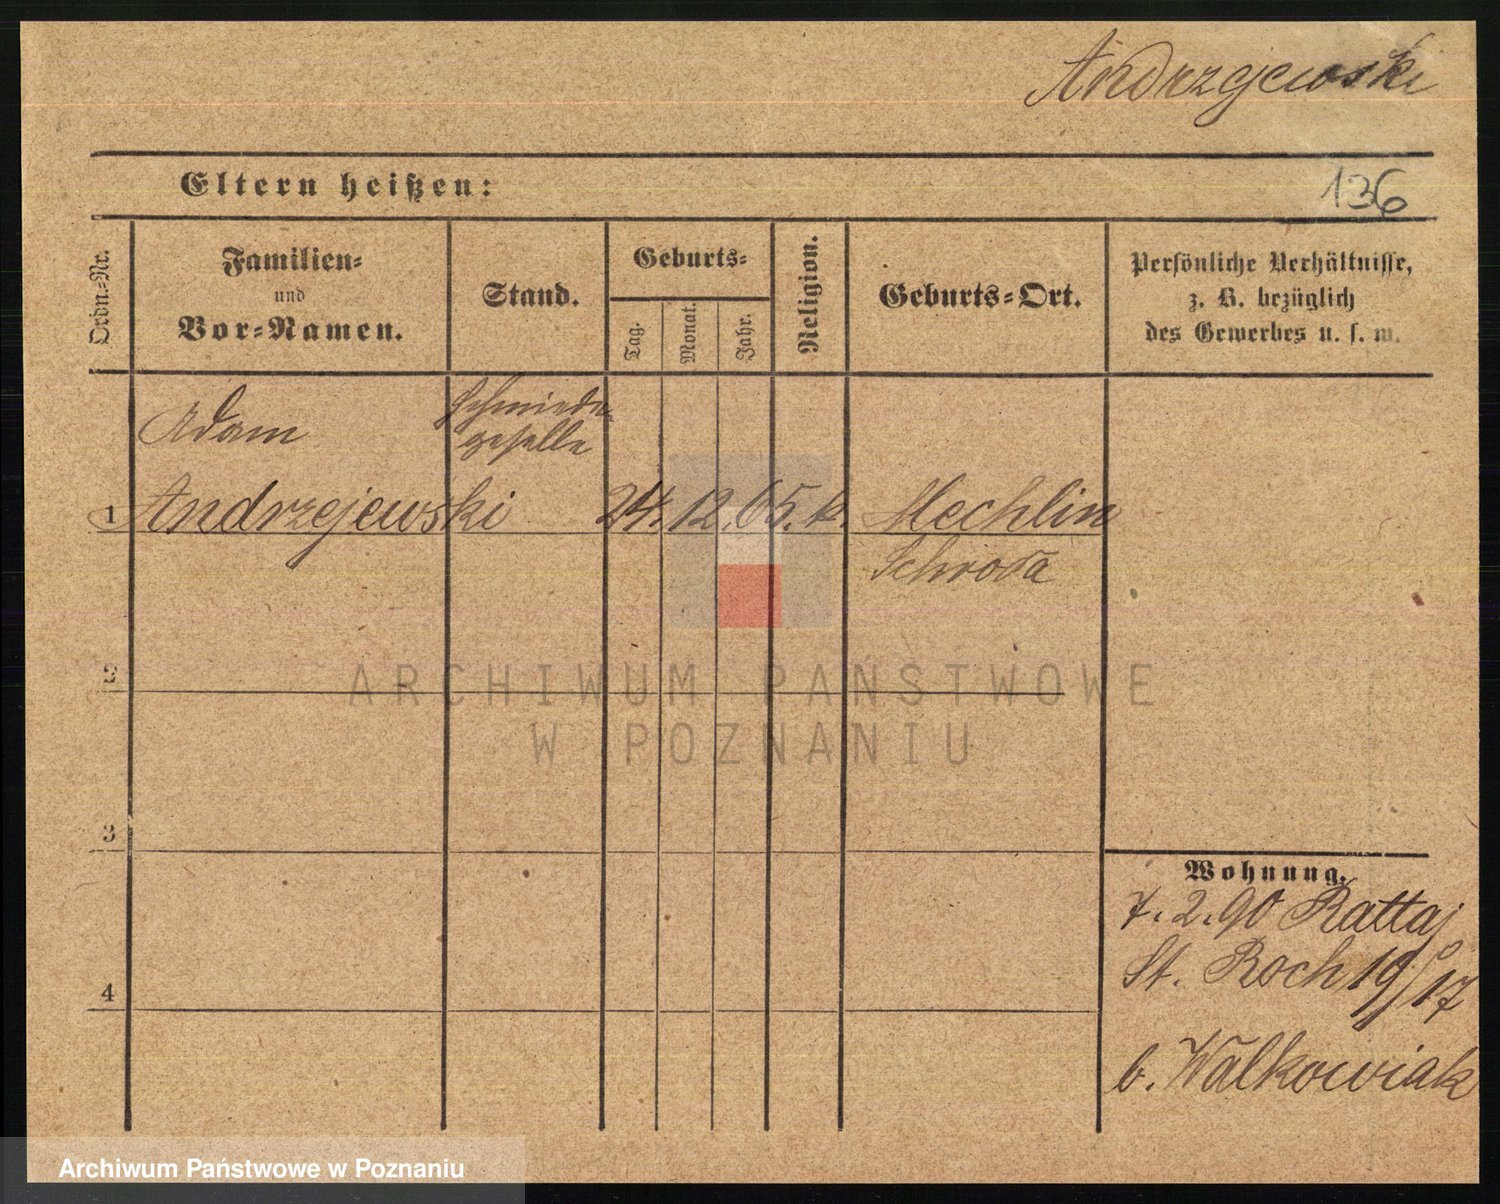 Andrzejewski
Eltern heißen:
136
Ordn.-Nr.
Familien-
und
Vor-Namen.
Stand.
Geburts-
Tag.
Monat.
Jahr.
Religion.
Geburts-Ort.
Persönliche Verhältnisse,
z. B. bezüglich
des Gewerbes u. s. w.
Adam
Schmiede-
geselle
1 Andrzejewski 24. 12. 65. k. Mechlin
Schroda
2
ARCHIWUM PAŃSTWOWE
W POZNANIU
3
Wohnung.
7. 2. 90 Rattaj
St. Roch 19/17
4
b. Walkowiak
Archiwum Państwowe w Poznaniu